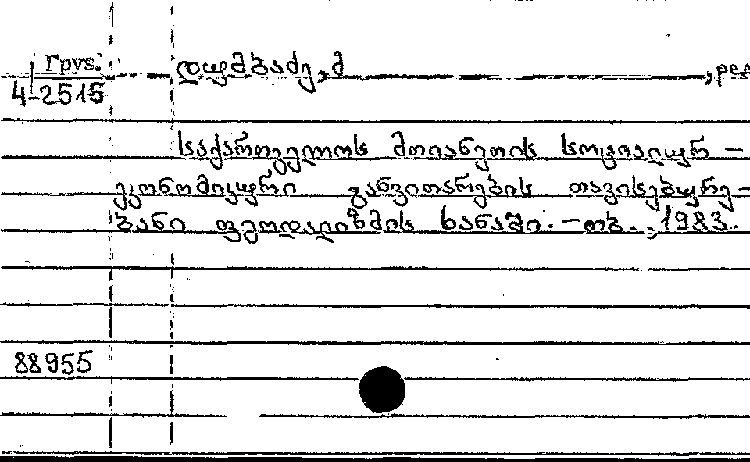 Груз. დუმბაძე, მ , ред
4-2515
საქართველოს მთიანეთის სოციალურ -
ეკონომიკური განვითარების თავისებურე-
ბანი ფეოდალიზმის ხანაში. - თბ., 1983.
88955